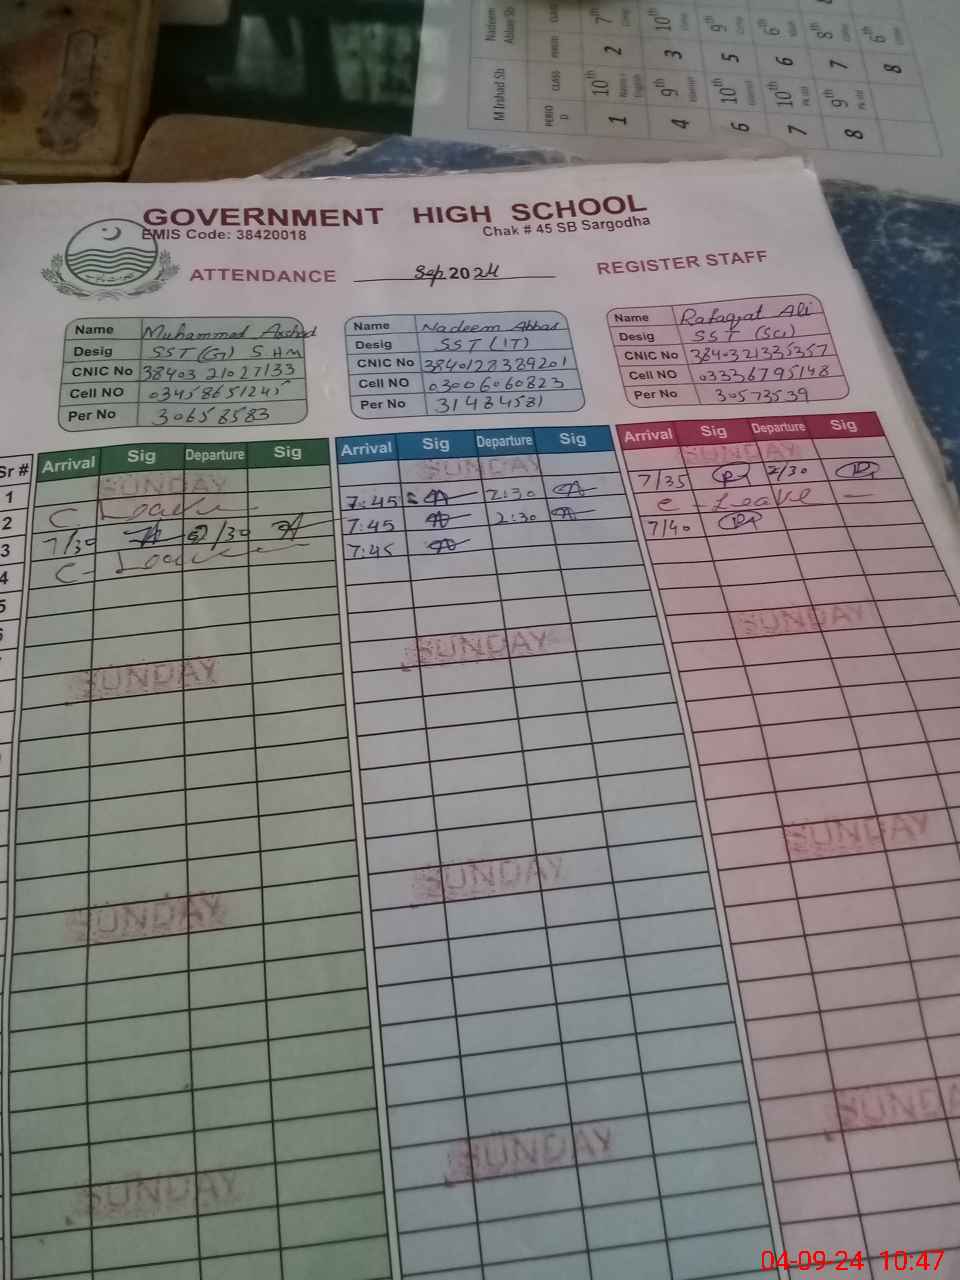 M Irshad Sb
Nadeem Abbas Sb
PERIO D CLASS PERIOD CLASS
1 10th 2 7th
4 9th 3 10th
6 10th 5 9th
7 10th 6 6th
8 9th 7 8th
8 6th
GOVERNMENT HIGH SCHOOL
EMIS Code: 38420018 Chak # 45 SB Sargodha
ATTENDANCE Sep. 2024 REGISTER STAFF
Name Muhammad Arshad
Desig SST(G) S.HM
CNIC No 38403 21027133
Cell NO 03458651245
Per No 30658583
Name Nadeem Abbas
Desig SST (IT)
CNIC No 3840128339201
Cell NO 03006060823
Per No 31484581
Name Rafaqat Ali
Desig SST (Sc)
CNIC No 3840321335357
Cell NO 03336795148
Per No 30573539
Sr # Arrival Sig Departure Sig Arrival Sig Departure Sig Arrival Sig Departure Sig
1 SUNDAY SUNDAY SUNDAY
2 C Leave 7:45 2:30 7/35 2/30
3 7/30 2/30 7:45 2:30 C-Leave
4 C-Leave 7:45 7/40
5
SUNDAY SUNDAY SUNDAY
SUNDAY SUNDAY SUNDAY
SUNDAY SUNDAY SUNDA
04-09-24 10:47